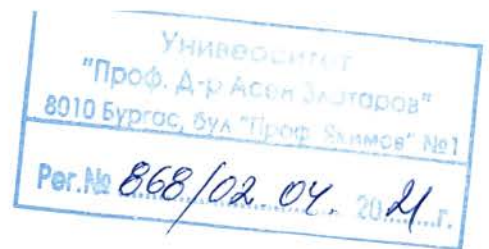 Университет
"Проф. Д-р Асен Златаров"
8010 Бургас, бул "Проф. Якимов" №1
Рег.№ 868/02 04. 2021г.